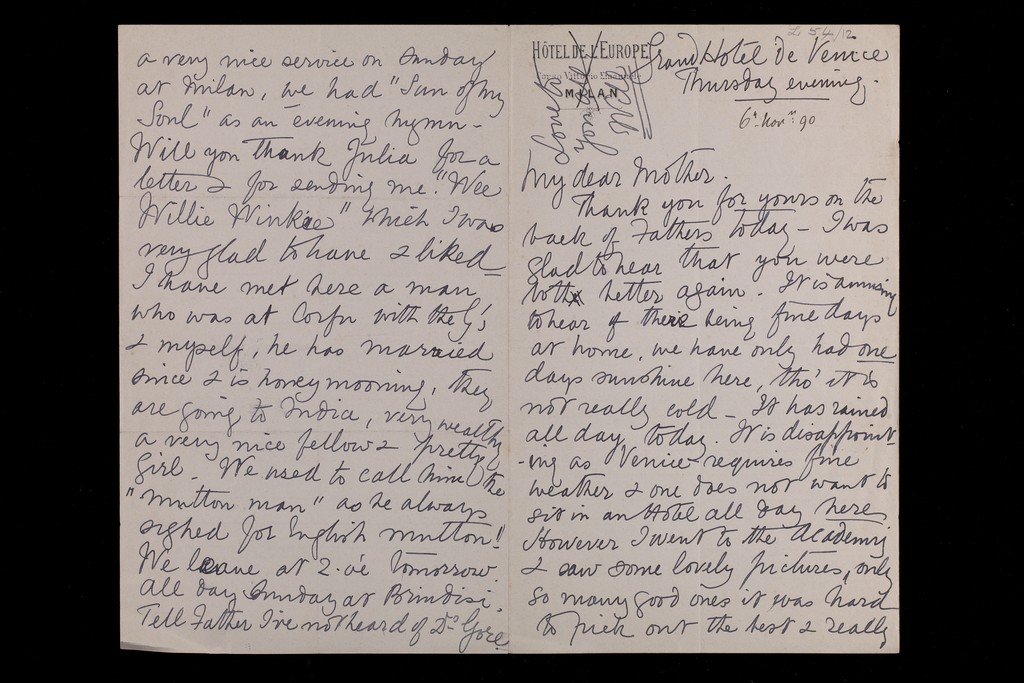 L 54/12
HÔTEL DE L'EUROPE
Corso Vittorio Emanuele
MILAN
Grand Hotel de Venice
Thursday evening.
6th Novr. 90
My dear Mother.
Thank you for yours on the
back of Fathers today - I was
glad to hear that you were
both better again. It is amusing
to hear of there being fine days
at home, we have only had one
days sunshine here, tho' it is
not really cold - It has rained
all day today. It is disappoint-
-ing as Venice requires fine
weather & one does not want to
sit in an Hotel all day here
However I went to the Academy
& saw some lovely pictures, only
so many good ones it was hard
to pick out the best & really
a very nice service on Sunday
at Milan, we had "Sun of my
Soul" as an evening hymn -
Will you thank Julia for a
letter & for sending me "Wee
Willie Winkie" which I was
very glad to have & liked -
I have met here a man
who was at Corfu with the G's
& myself, he has married
since & is honeymooning, they
are going to India, very wealthy
a very nice fellow & pretty
girl. We used to call him the
"mutton man" as he always
sighed for English mutton"!
We leave at 2. o'c tomorrow.
All day Sunday at Brindisi.
Tell Father I've not heard of Dr. Gore.